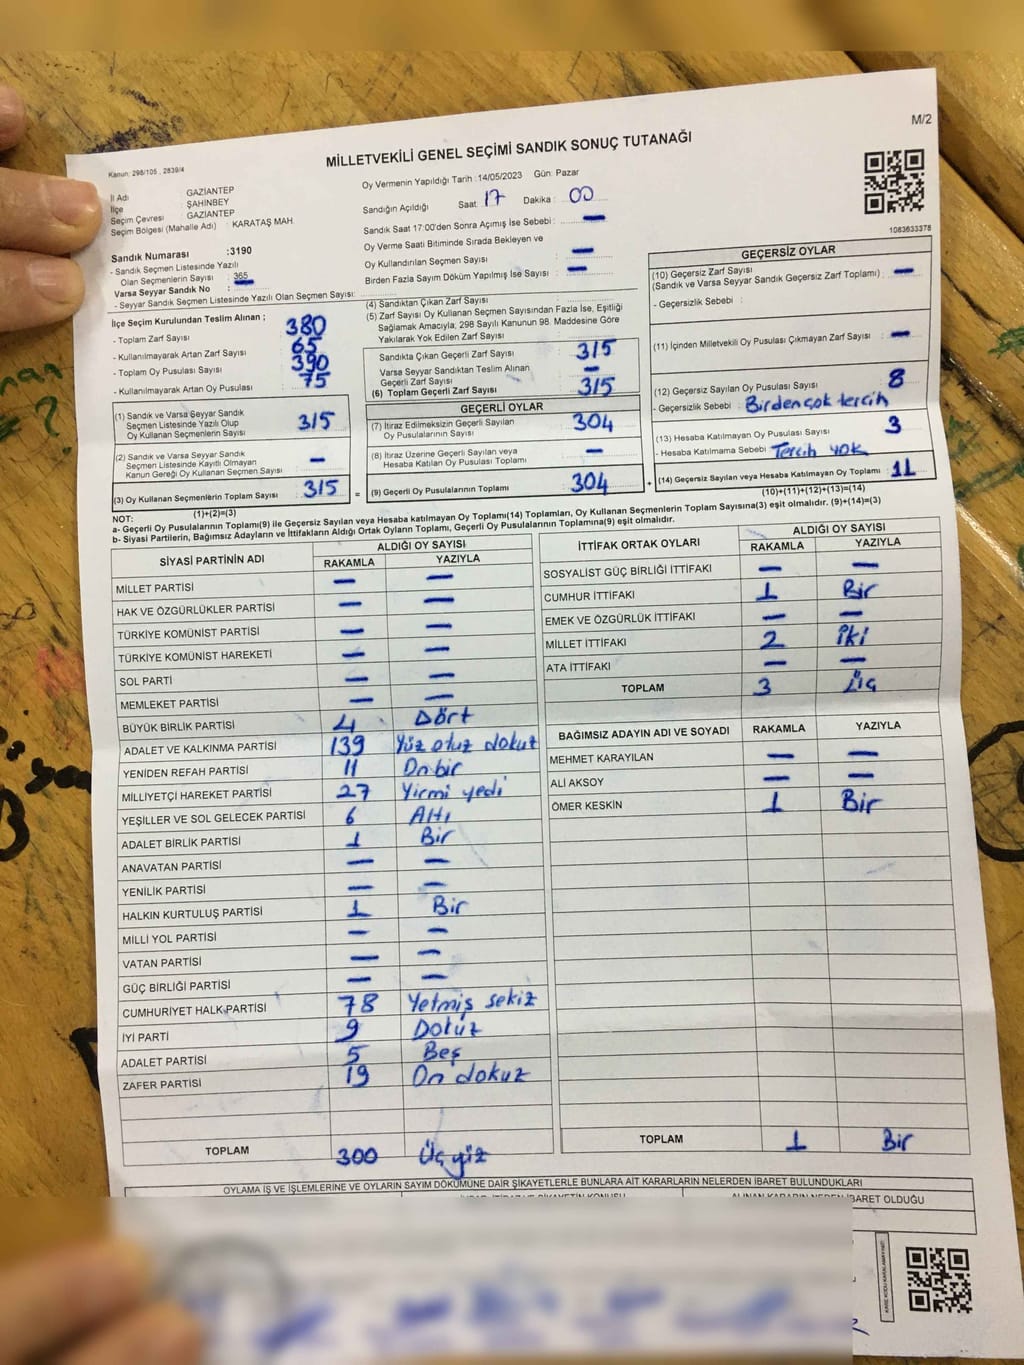 M/2
Kanun: 298/105 , 2839/4
MİLLETVEKİLİ GENEL SEÇİMİ SANDIK SONUÇ TUTANAĞI
İl Adı GAZİANTEP
İlçe ŞAHİNBEY
Seçim Çevresi GAZİANTEP
Seçim Bölgesi (Mahalle Adı) : KARATAŞ MAH
Sandık Numarası :3190
- Sandık Seçmen Listesinde Yazılı
Olan Seçmenlerin Sayısı : 365
Varsa Seyyar Sandık No :
- Seyyar Sandık Seçmen Listesinde Yazılı Olan Seçmen Sayısı:
Oy Vermenin Yapıldığı Tarih :14/05/2023 Gün: Pazar
Sandığın Açıldığı Saat: 17 Dakika : 00
Sandık Saat 17:00'den Sonra Açımış İse Sebebi : —
Oy Verme Saati Bitiminde Sırada Bekleyen ve
Oy Kullandırılan Seçmen Sayısı : —
Birden Fazla Sayım Döküm Yapılmış İse Sayısı : —
1083633378
İlçe Seçim Kurulundan Teslim Alınan ;
- Toplam Zarf Sayısı : 380
- Kullanılmayarak Artan Zarf Sayısı : 65
- Toplam Oy Pusulası Sayısı : 390
- Kullanılmayarak Artan Oy Pusulası : 75
(1) Sandık ve Varsa Seyyar Sandık
Seçmen Listesinde Yazılı Olup
Oy Kullanan Seçmenlerin Sayısı : 315
(2) Sandık ve Varsa Seyyar Sandık
Seçmen Listesinde Kayıtlı Olmayan
Kanun Gereği Oy Kullanan Seçmen Sayısı : —
(3) Oy Kullanan Seçmenlerin Toplam Sayısı : 315
(1)+(2)=(3)
(4) Sandıktan Çıkan Zarf Sayısı :
(5) Zarf Sayısı Oy Kullanan Seçmen Sayısından Fazla İse, Eşitliği
Sağlamak Amacıyla; 298 Sayılı Kanunun 98. Maddesine Göre
Yakılarak Yok Edilen Zarf Sayısı :
Sandıkta Çıkan Geçerli Zarf Sayısı : 315
Varsa Seyyar Sandıktan Teslim Alınan
Geçerli Zarf Sayısı : —
(6) Toplam Geçerli Zarf Sayısı : 315
GEÇERLİ OYLAR
(7) İtiraz Edilmeksizin Geçerli Sayılan
Oy Pusulalarının Sayısı : 304
(8) İtiraz Üzerine Geçerli Sayılan veya
Hesaba Katılan Oy Pusulası Toplamı : —
= (9) Geçerli Oy Pusulalarının Toplamı : 304 +
GEÇERSİZ OYLAR
(10) Geçersiz Zarf Sayısı
(Sandık ve Varsa Seyyar Sandık Geçersiz Zarf Toplamı) : —
- Geçersizlik Sebebi :
(11) İçinden Milletvekili Oy Pusulası Çıkmayan Zarf Sayısı : —
(12) Geçersiz Sayılan Oy Pusulası Sayısı : 8
- Geçersizlik Sebebi : Birden çok tercih
(13) Hesaba Katılmayan Oy Pusulası Sayısı : 3
- Hesaba Katılmama Sebebi : Tercih yok
(14) Geçersiz Sayılan veya Hesaba Katılmayan Oy Toplamı : 11
(10)+(11)+(12)+(13)=(14)
NOT:
a- Geçerli Oy Pusulalarının Toplamı(9) ile Geçersiz Sayılan veya Hesaba katılmayan Oy Toplamı(14) Toplamları, Oy Kullanan Seçmenlerin Toplam Sayısına(3) eşit olmalıdır. (9)+(14)=(3)
b- Siyasi Partilerin, Bağımsız Adayların ve İttifakların Aldığı Ortak Oyların Toplamı, Geçerli Oy Pusulalarının Toplamına(9) eşit olmalıdır.
SİYASİ PARTİNİN ADI ALDIĞI OY SAYISI
RAKAMLA YAZIYLA
MİLLET PARTİSİ — —
HAK VE ÖZGÜRLÜKLER PARTİSİ — —
TÜRKİYE KOMÜNİST PARTİSİ — —
TÜRKİYE KOMÜNİST HAREKETİ — —
SOL PARTİ — —
MEMLEKET PARTİSİ — —
BÜYÜK BİRLİK PARTİSİ 4 Dört
ADALET VE KALKINMA PARTİSİ 139 Yüz otuz dokuz
YENİDEN REFAH PARTİSİ 11 On bir
MİLLİYETÇİ HAREKET PARTİSİ 27 Yirmi yedi
YEŞİLLER VE SOL GELECEK PARTİSİ 6 Altı
ADALET BİRLİK PARTİSİ 1 Bir
ANAVATAN PARTİSİ — —
YENİLİK PARTİSİ — —
HALKIN KURTULUŞ PARTİSİ 1 Bir
MİLLİ YOL PARTİSİ — —
VATAN PARTİSİ — —
GÜÇ BİRLİĞİ PARTİSİ — —
CUMHURİYET HALK PARTİSİ 78 Yetmiş sekiz
İYİ PARTİ 9 Dokuz
ADALET PARTİSİ 5 Beş
ZAFER PARTİSİ 19 On dokuz
TOPLAM 300 Üç yüz
İTTİFAK ORTAK OYLARI ALDIĞI OY SAYISI
RAKAMLA YAZIYLA
SOSYALİST GÜÇ BİRLİĞİ İTTİFAKI — —
CUMHUR İTTİFAKI 1 Bir
EMEK VE ÖZGÜRLÜK İTTİFAKI — —
MİLLET İTTİFAKI 2 İki
ATA İTTİFAKI — —
TOPLAM 3 Üç
BAĞIMSIZ ADAYIN ADI VE SOYADI RAKAMLA YAZIYLA
MEHMET KARAYILAN — —
ALİ AKSOY — —
ÖMER KESKİN 1 Bir
TOPLAM 1 Bir
OYLAMA İŞ VE İŞLEMLERİNE VE OYLARIN SAYIM DÖKÜMÜNE DAİR ŞİKAYETLERLE BUNLARA AİT KARARLARIN NELERDEN İBARET BULUNDUKLARI